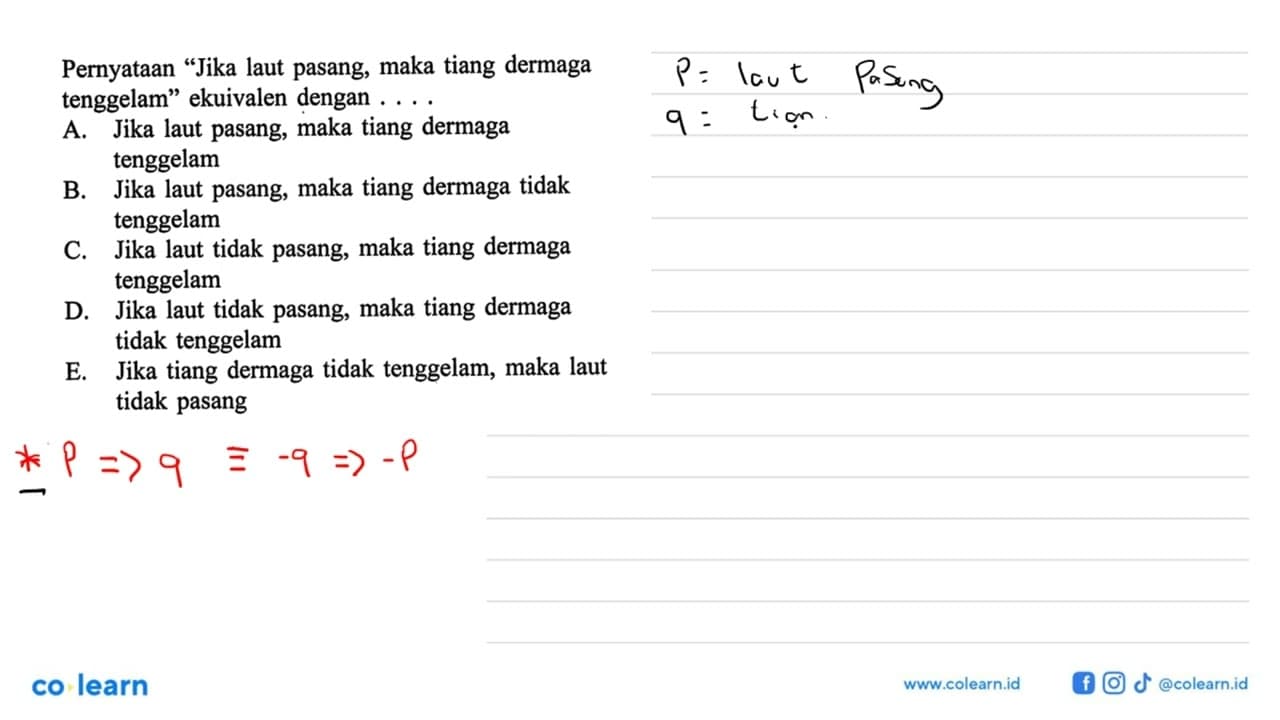 Pernyataan “Jika laut pasang, maka tiang dermaga
tenggelam” ekuivalen dengan . . . .
A. Jika laut pasang, maka tiang dermaga
tenggelam
B. Jika laut pasang, maka tiang dermaga tidak
tenggelam
C. Jika laut tidak pasang, maka tiang dermaga
tenggelam
D. Jika laut tidak pasang, maka tiang dermaga
tidak tenggelam
E. Jika tiang dermaga tidak tenggelam, maka laut
tidak pasang
P = laut Pasang
q = tian
* P => q ≡ -q => -P
co learn
www.colearn.id
@colearn.id